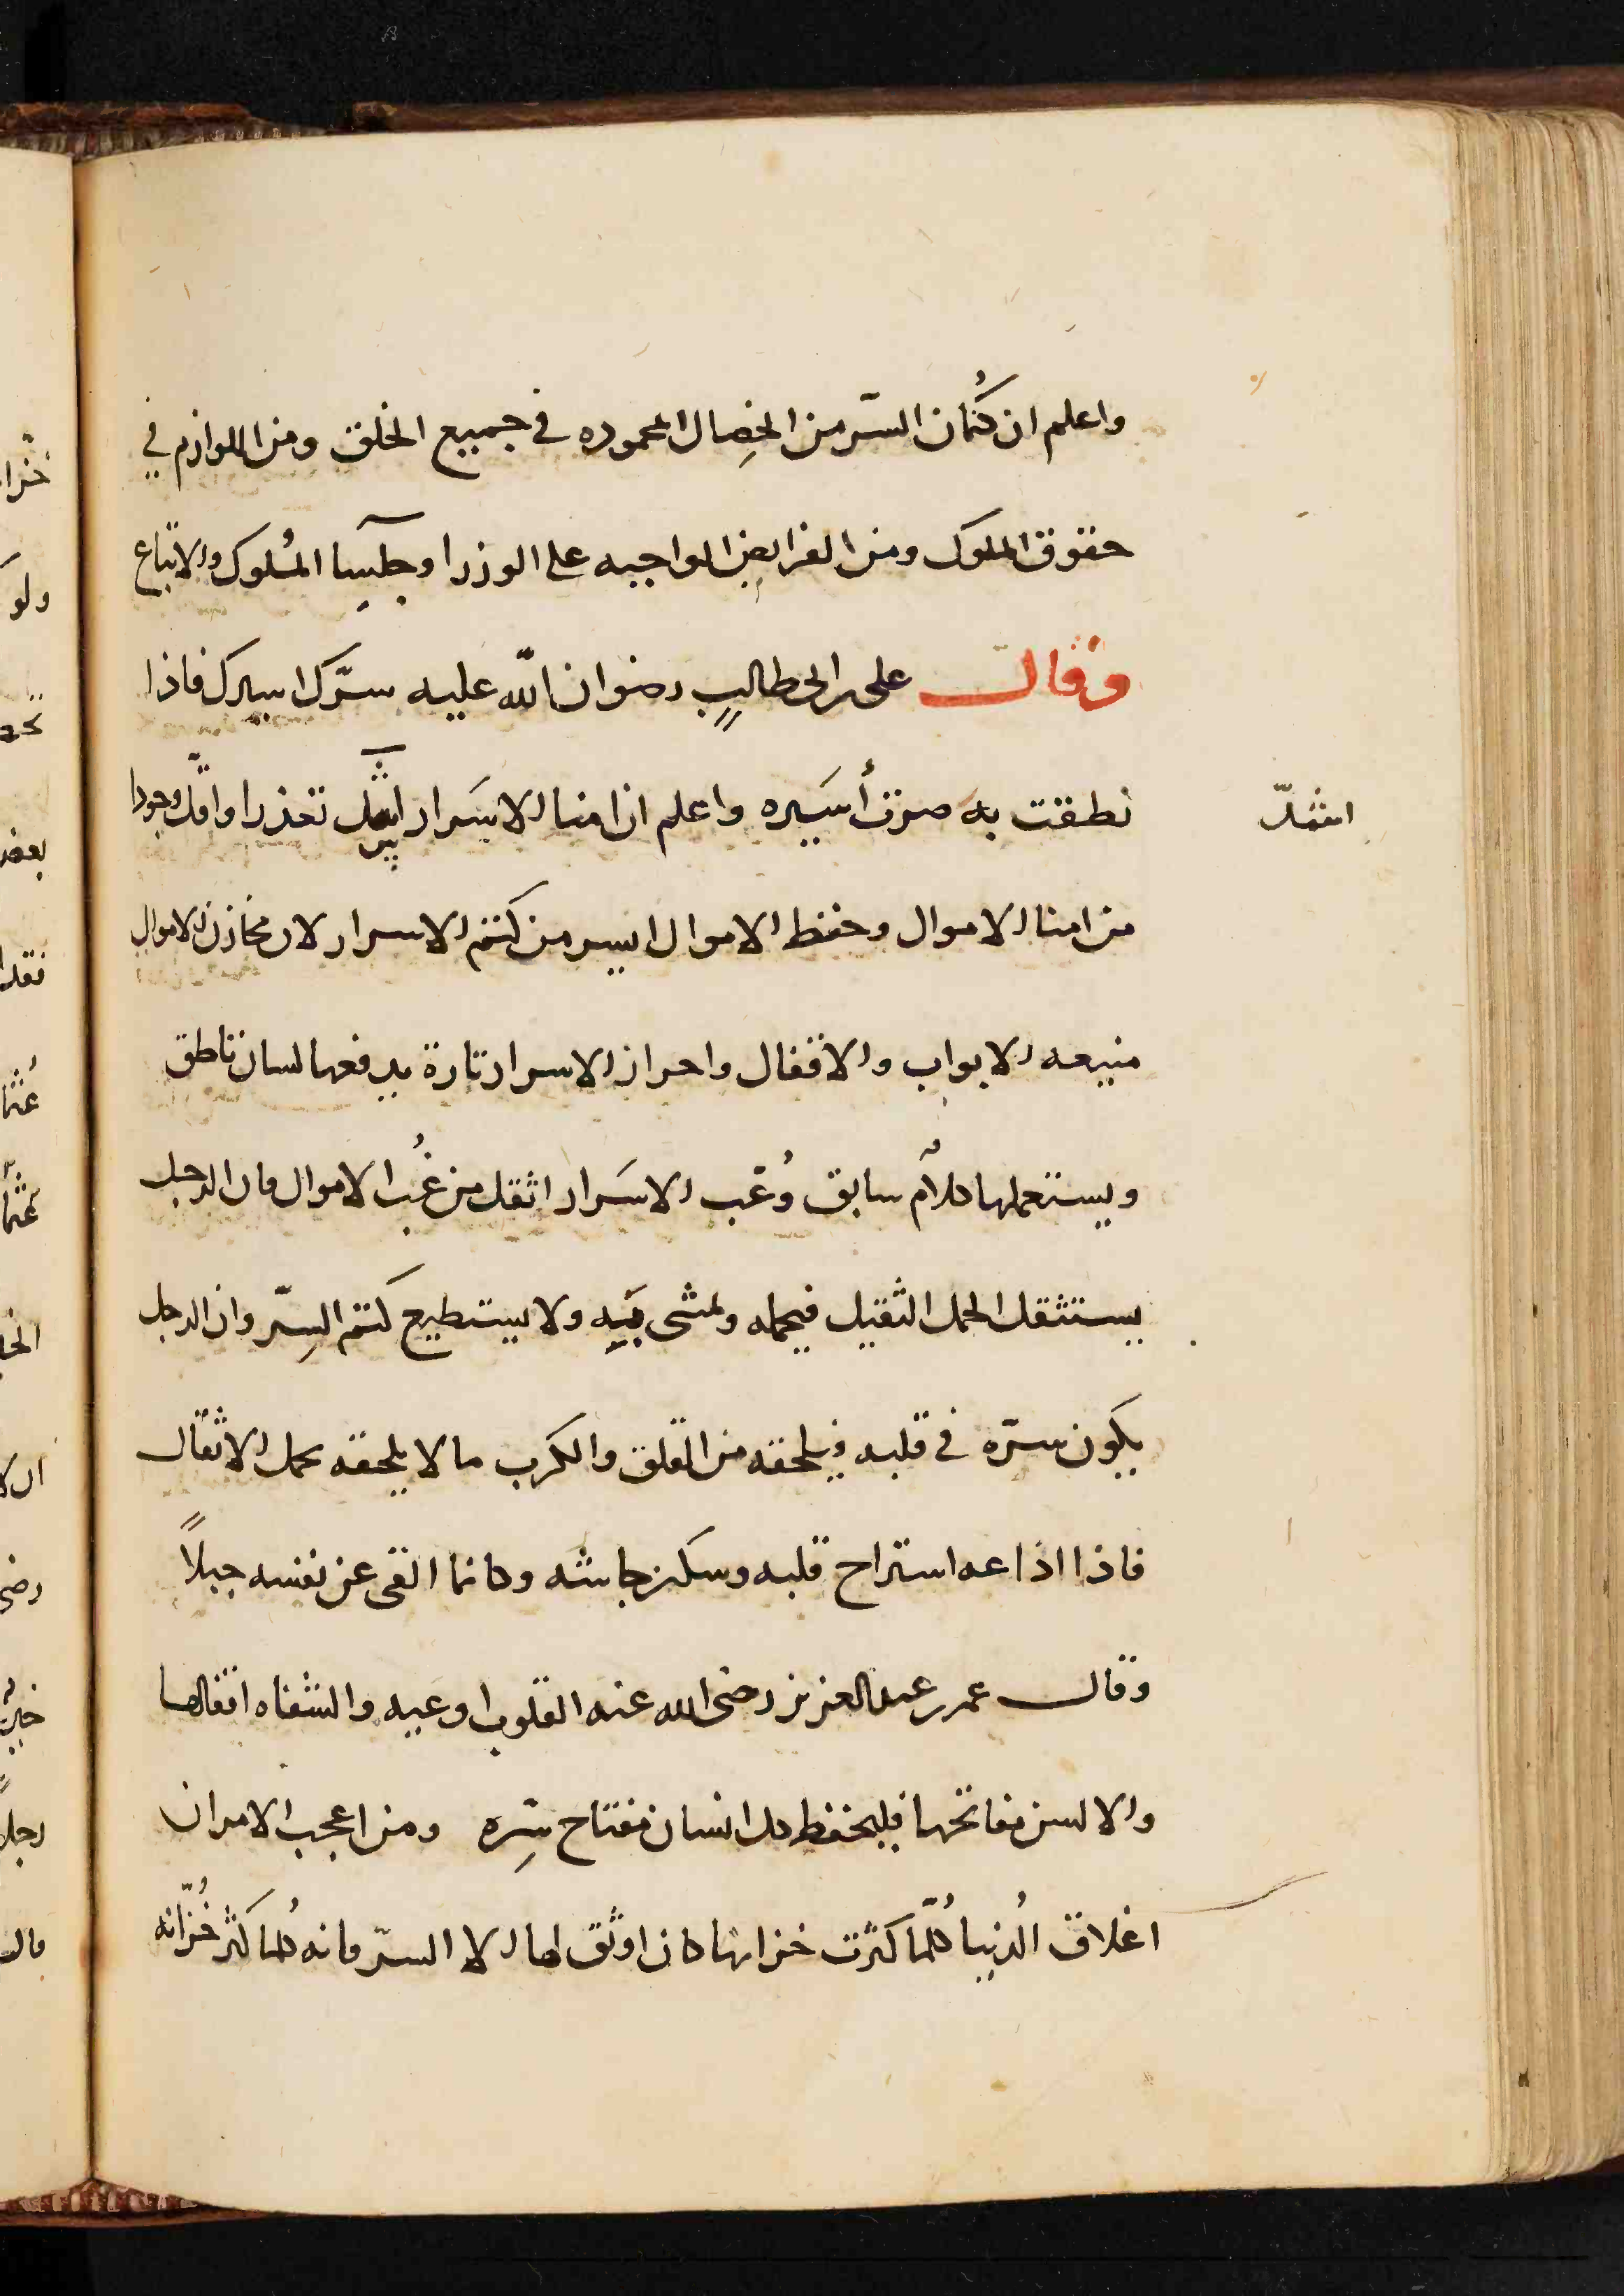 واعلم ان كُتمان السّر من الخِصال المحموده في جميع الخلق ومن اللوازم في
حقوق الملوك ومن الفرايض الواجبه على الوزرا وجلسِا المُلوك والاتباع
وقال على بن ابى طالبٍ رضوان اللّه عليه سرّك اسيرك فاذا
نطقت به صرت أسَيره واعلم ان امنا الاسَرار تعذرا واقلّ وجودا
اشدّ
من امنا الاموال وحفظ الاموال ايسر من كتم الاسرار لان مخازن الاموال
منيعه الابواب والاقفال واحراز الاسرار تارة يدفعها لسان ناطق
ويستعملها كلام سابق وعُب الاسَرار اثقل من عُب الاموال فان الرجل
يستثقل الحمل الثقيل فيحمله ويمشى بَيِه ولا يستطيع كتم السِرّ وان الرجل
يكون سرّه في قلبه فيلحقه من القلق والكرب ما لا يلحقه بحمل الاثقال
فاذا اذاعه استراح قلبه وسكن جاشه وكانما القى عن نفسه جبلاً
وقال عمر بن عبد العزيز رضى الله عنه القلوب اوعيه والشفاه اقفالها
والالسن مفاتحها فليحفظ كل انسان مفتاح سِرّه ومن اعجب الامر ان
اغلاق الُدنيا كُلّما كثرت خزانها كان اوثق لها الا السرّ فانه كُلما كثر خُزّانه